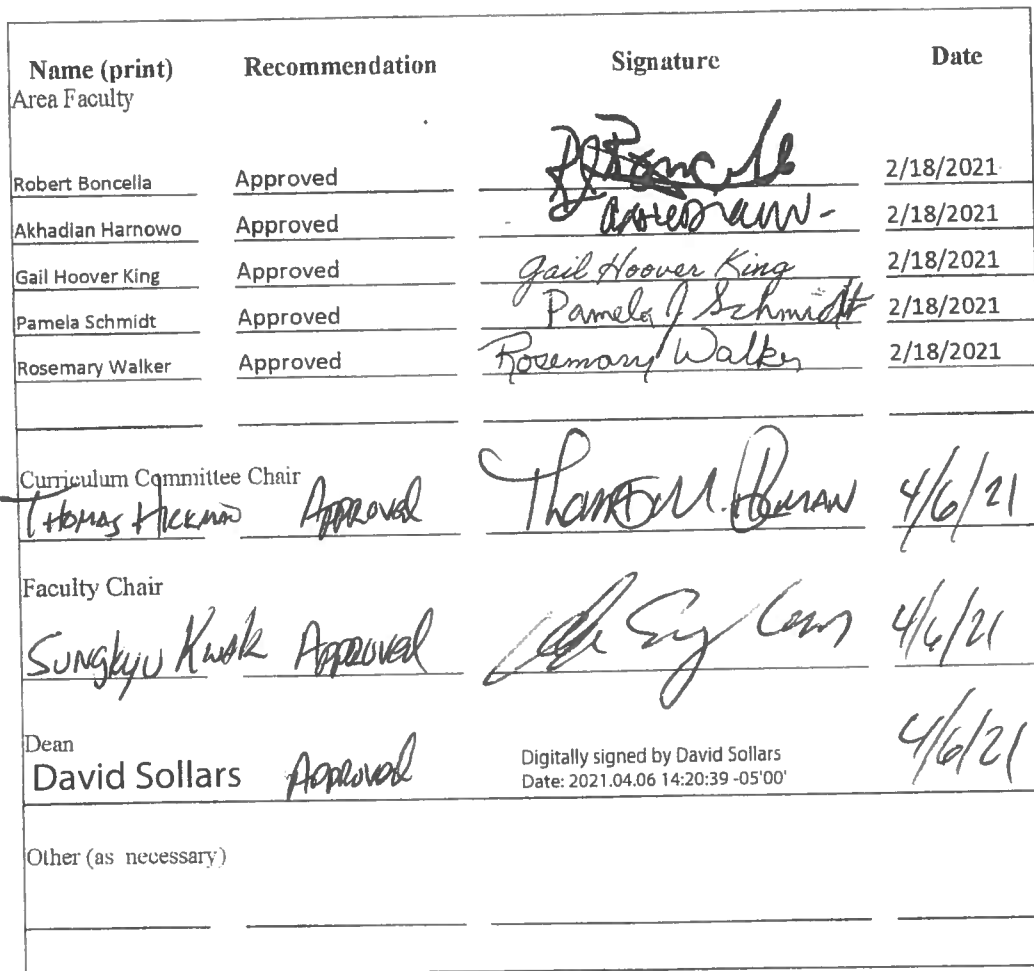 Name (print) Recommendation Signature Date
Area Faculty
Robert Boncella Approved 2/18/2021
Akhadian Harnowo Approved 2/18/2021
Gail Hoover King Approved Gail Hoover King 2/18/2021
Pamela Schmidt Approved Pamela J Schmidt 2/18/2021
Rosemary Walker Approved Rosemary Walker 2/18/2021
Curriculum Committee Chair
THOMAS HICKMAN APPROVED 4/6/21
Faculty Chair
SUNGKYU KWAK APPROVED 4/6/21
Dean
David Sollars APPROVED Digitally signed by David Sollars 4/6/21
Date: 2021.04.06 14:20:39 -05'00'
Other (as necessary)